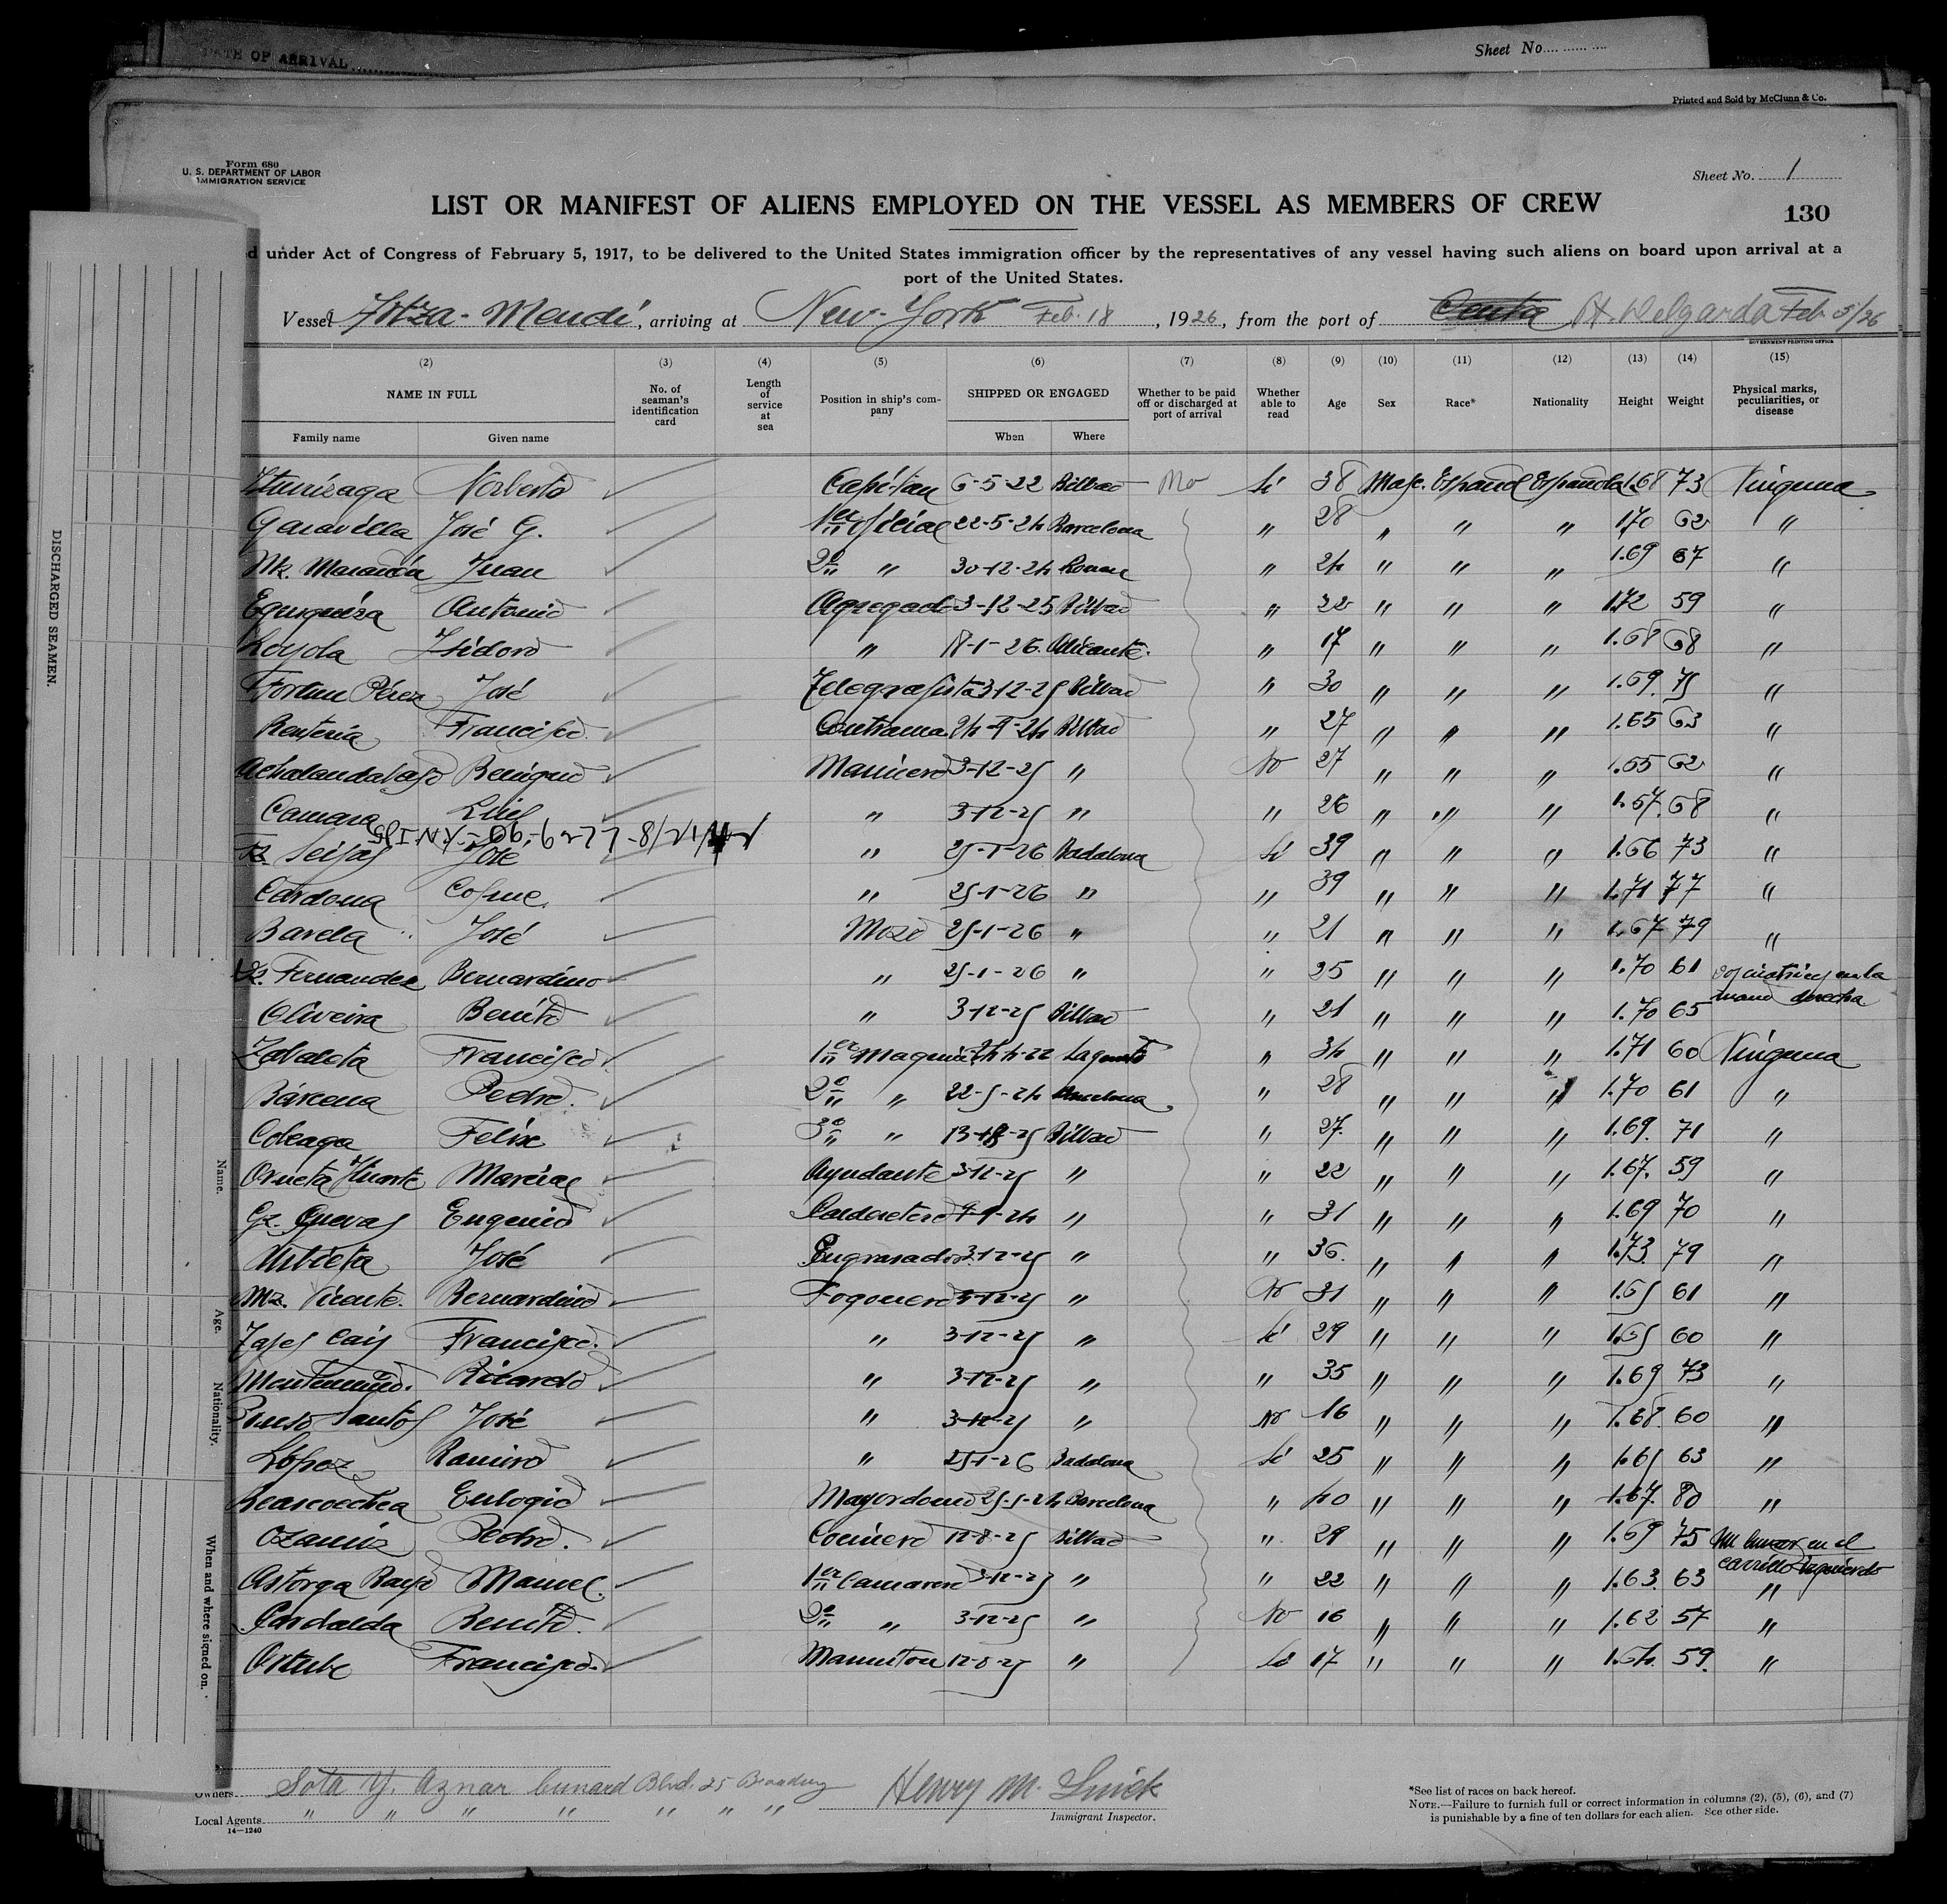 DATE OF ARRIVAL
Sheet No.
Printed and Sold by McClunn & Co.
Form 680
U. S. DEPARTMENT OF LABOR
IMMIGRATION SERVICE
Sheet No. 1
LIST OR MANIFEST OF ALIENS EMPLOYED ON THE VESSEL AS MEMBERS OF CREW
130
under Act of Congress of February 5, 1917, to be delivered to the United States immigration officer by the representatives of any vessel having such aliens on board upon arrival at a
port of the United States.
Vessel Artza-Mendi, arriving at New-York Feb. 18, 1926, from the port of Ceuta P. Delgarda Feb 5/26
GOVERNMENT PRINTING OFFICE
(2) (3) (4) (5) (6) (7) (8) (9) (10) (11) (12) (13) (14) (15)
NAME IN FULL No. of seaman's identification card Length of service at sea Position in ship's company SHIPPED OR ENGAGED Whether to be paid off or discharged at port of arrival Whether able to read Age Sex Race* Nationality Height Weight Physical marks, peculiarities, or disease
Family name Given name When Where
Iturizaga Norberto Capitan 6-5-22 Bilbao No Si 38 Masc. Español Española 1.68 73 Ninguna
Garavilla José G. 1er Oficial 22-5-24 Barcelona " 28 " " " 1.70 62 "
Mz. Marañón Juan 2º " 30-12-24 Rouen " 24 " " " 1.69 67 "
Eguiguiza Antonio Agregado 3-12-25 Bilbao " 22 " " " 1.72 59 "
Loyola Isidoro " 18-1-26 Alicante " 17 " " " 1.68 68 "
Fortun Pérez José Telegrafista 3-12-25 Bilbao " 30 " " " 1.69 75 "
Renteria Francisco Contramae. 24-9-24 Bilbao " 27 " " " 1.65 63 "
Achalandabaso Benigno Marinero 3-12-25 " No 27 " " " 1.65 62 "
Camara Luis " 3-12-25 " " 26 " " " 1.67 68 "
Fz. Seijas José " 25-1-26 Badalona Si 39 " " " 1.66 73 "
Cardona Cosme " 25-1-26 " " 39 " " " 1.71 77 "
Barela José Mozo 25-1-26 " " 21 " " " 1.67 79 "
Fernandez Bernardino " 25-1-26 " " 25 " " " 1.70 61 dos cicatrices en la
mano derecha
Oliveira Benito " 3-12-25 Bilbao " 21 " " " 1.70 65
Zabaleta Francisco 1er Maquinista 4-22 Sagunto " 34 " " " 1.71 60 Ninguna
Bárcena Pedro 2º " 22-5-24 Barcelona " 28 " " " 1.70 61 "
Coleaga Felix 3º " 25 Bilbao " 27 " " " 1.69 71 "
Orueta Iturarte Marcial Ayudante 3-12-25 " " 22 " " " 1.67 59 "
Gz. Cuevas Eugenio Calderetero 9-9-24 " " 31 " " " 1.69 70 "
Urbieta José Engrasador 3-12-25 " " 36 " " " 1.73 79 "
Mz. Vicente Bernardino Fogonero 3-12-25 " No 31 " " " 1.65 61 "
Francisco " 3-12-25 " Si 29 " " " 1.65 60 "
Ricardo " 3-12-25 " " 35 " " " 1.69 73 "
Santos José " 3-12-25 " No 16 " " " 1.68 60 "
López Ramiro " 25-1-26 Badalona Si 25 " " " 1.65 63 "
Beascoechea Eulogio Mayordomo 25-5-24 Barcelona " 40 " " " 1.67 80 "
Ozamiz Pedro Cocinero 12-8-25 Bilbao " 29 " " " 1.69 75 Un lunar en el
carrillo izquierdo
Astorga Manuel 1er Camarero 3-12-25 " " 22 " " " 1.63 63 "
Gardalda Benito 2º " 3-12-25 " No 16 " " " 1.62 57 "
Ortube Francisco Marmiton 12-8-25 " Si 17 " " " 1.64 59 "
DISCHARGED SEAMEN.
Name.
Age.
Nationality.
When and where signed on.
Owners Sota Y. Aznar Cunard Bld. 25 Broadway
Local Agents " " " " " " "
14—1240
Henry M. Quick
Immigrant Inspector.
*See list of races on back hereof.
NOTE.—Failure to furnish full or correct information in columns (2), (5), (6), and (7)
is punishable by a fine of ten dollars for each alien. See other side.